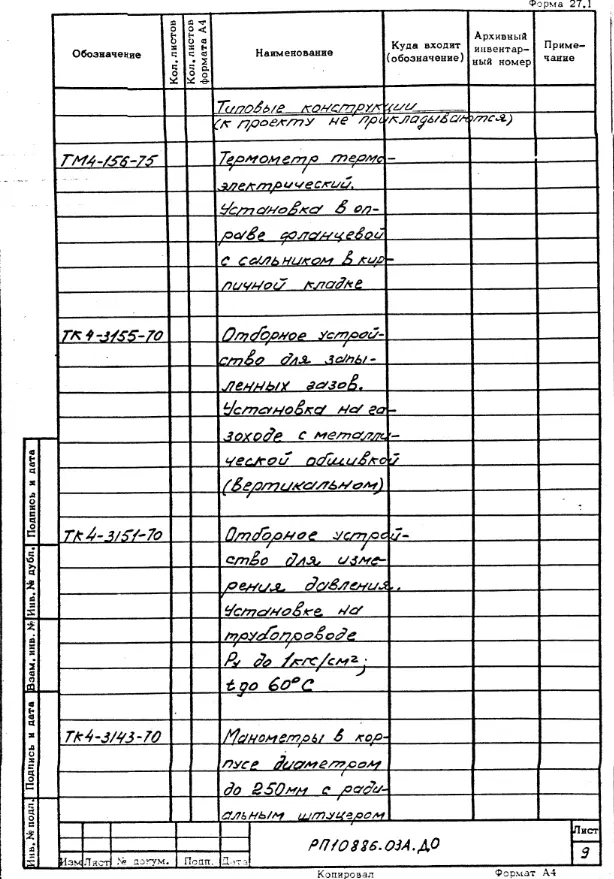 Форма 27.1
Обозначение
Кол. листов
Кол. листов формата А4
Наименование
Куда входит (обозначение)
Архивный инвентарный номер
Примечание
Типовые конструкции
(к проекту не прикладываются)
ТМ4-156-75 Термометр термо-
электрический.
Установка в оп-
раве фланцевой
с сальником в кир
пичной кладке
ТК4-3155-70 Отборное устрой-
ство для запы-
ленных газов.
Установка на га-
зоходе с металли-
ческой обшивкой
(вертикальном)
ТК4-3151-70 Отборное устрой-
ство для изме-
рения давления.
Установке на
трубопроводе
Ру до 1кгс/см²;
t до 60°С
ТК4-3143-70 Манометры в кор-
пусе диаметром
до 250мм с ради-
альным штуцером
Инв. № подл.
Подпись и дата
Взам. инв. №
Инв. № дубл.
Подпись и дата
РП10886-03А.ДО
Лист
9
Изм Лист № докум. Подп. Дата
Копировал Формат А4